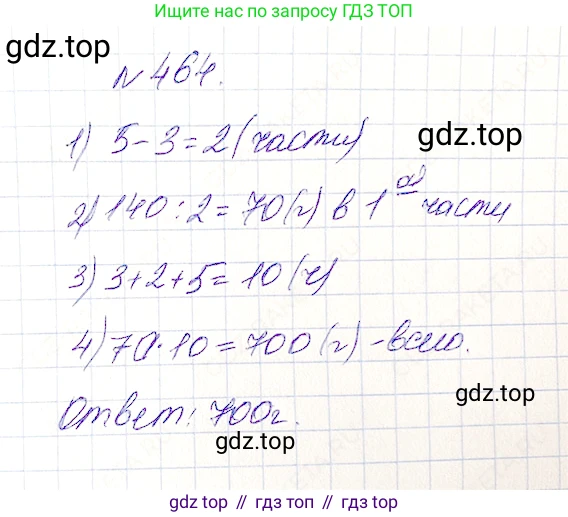 Ищите нас по запросу ГДЗ ТОП
gdz.top
№ 464.
1) 5-3=2 (части)
gdz.top
2) 140:2=70(г) в 1ой части
3) 3+2+5=10 (ч)
4) 70·10=700 (г) -всего.
gdz.top
Ответ: 700г.
gdz.top
gdz.top // гдз топ // гдз.топ